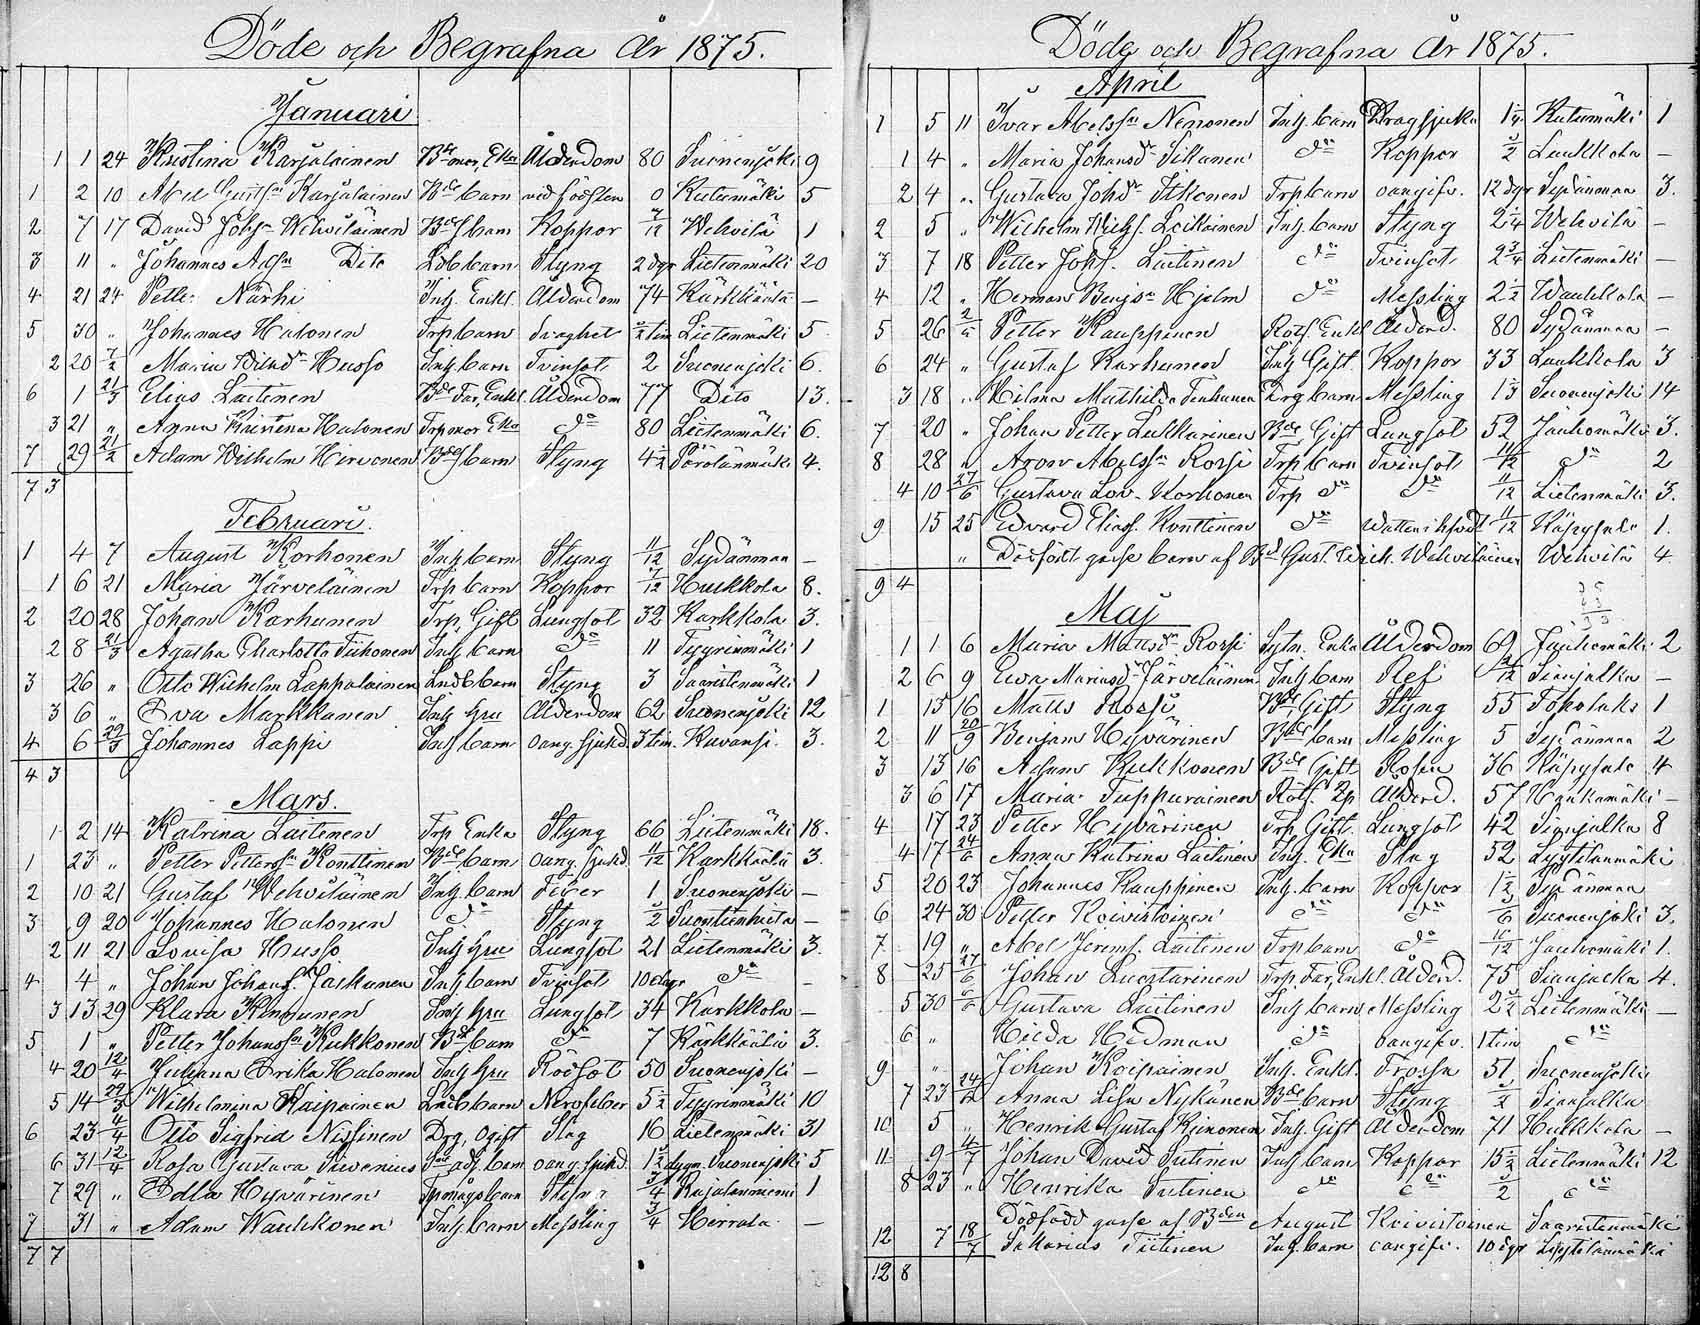 Döde och Begrafna År 1875.
Januari
1 1 24 Kristina Karjalainen Bde mor, Eka Ålderdom 80 Suonenjoki 9
1 2 10 Abel Gustfsn Karjalainen Bde barn vid födslen 0 Kutumäki 5
2 7 17 David Johsn Wehviläinen Bde barn Koppor 7/12 Wehvilä 1
3 11 " Johannes Adsn Dito Ldb barn Styng 2 dgr Lietenmäki 20
4 21 24 Petter Närhi Inh. Enkl. Ålderdom 74 Kärkkäälä —
5 30 " Johannes Halonen Trp barn Svaghet 1/2 tim Lietenmäki 5
2 20 7/2 Maria Husso Inh. barn Tvinsot 2 Suonenjoki 6.
6 1 21/3 Elias Laitinen Bde Far, Enkl. Ålderdom 77 Dito 13.
3 21 " Anna Kristina Halonen Trp mor Eka do 80 Lietenmäki 6.
7 29 21/2 Adam Wilhelm Hirvonen Bde barn Styng 4 1/2 Pörölänmäki 4.
7 3
Februari.
1 4 7 August Korhonen Inh barn Styng 11/12 Sydänmaa —
1 6 21 Maria Järveläinen Trp barn Koppor 7/12 Hulkkola 8.
2 20 28 Johan Karhunen Trp, Gift Lungsot 32 Karkkola 3.
2 8 21/3 Agatha Charlotta Tiihonen Inh barn do 11 Tyyrinmäki 1
3 26 " Otto Wilhelm Lappalainen Ladb barn Styng 3 Saaristenmäki 1
3 6 " Eva Markkanen Inh Hru Ålderdom 62 Suonenjoki 12
4 6 29/3 Johannes Lappi Inh barn oang. sjukd. 3 tim. 3.
4 3
Mars.
1 2 14 Katrina Laitinen Trp Enka Styng 66 Lietenmäki 18.
1 23 " Petter Pettersn Konttinen Bde barn oang. sjukd. 11/12 Karkkäälä 3.
2 10 21 Gustaf Wehviläinen Inh barn Feber 1 Suonenjoki —
3 9 20 Johannes Halonen do Styng 1/2 Suontienhuta —
2 11 21 Lovisa Husso Inh Hru Lungsot 21 Lietenmäki 3.
4 4 " Johan Johans. Jaskanen Inh barn Tvinsot 10 dgr do —
3 13 29 Klara Kinnunen Inh Hru Lungsot 34 Karkkola —
5 1 " Petter Johanssn Kukkonen Bde barn do 7 Kärkkäälä 3.
4 20 12/4 Juliana Erika Halonen Inh Hru Rödsot 50 Suonenjoki —
5 14 29/3 Wilhelmina Kaipainen Ladb barn Nervfeber 5 1/2 Tyyrinmäki 10
6 23 4/4 Otto Sigfrid Nissinen Drg, Ogift Slag 16 Lietenmäki 31
6 31 12/4 Rosa Gustava Sirenius barn oang. sjukd. 1 1/2 dygn Suonenjoki 5
7 29 " Edla Hyvärinen barn Styng 3/4 Rajalanniemi 1
7 31 " Adam Waukkonen Inh. barn Messling 3/4 Herrala —
7 7
Döde och Begrafna År 1875.
April
1 5 11 Ivar Abelssn Nenonen Inh. barn Dragsjuka 1 1/4 Kutumäki 1
1 4 " Maria Johansdr Sikanen do Koppor 1/2 Laukkola —
2 4 " Gustava Johdr Itkonen Trp barn oangifv. 12 dgr Sydänmaa 3.
2 5 " Wilhelm Wilhs. Leikainen Inh. barn Styng 2 1/4 Wehvilä —
3 7 18 Petter Johs. Laitinen do Tvinsot 2 3/4 Lietenmäki —
4 12 " Herman Benjsn Hjelm do Messling 2 1/2 Waukkola —
5 26 Petter Kauppinen Rotf. Enkl Ålderd. 80 Sydänmaa —
6 24 " Gustaf Karhunen Inh Gift. Koppor 33 Laukkola 3
3 18 " Hilma Mathilda Tenhunen Drg barn Messling 1 1/2 Suonenjoki 14
7 20 " Johan Petter Lukkarinen Bde Gift Lungsot 52 Jauhomäki 3.
8 28 " Aron Abelssn Rossi Trp barn Tvinsot 11/12 do 2
4 10 27/6 Gustava Lov. Korhonen Trp do do 11/12 Lietenmäki 3.
9 15 25 Edvard Eliass. Konttinen do 11/12 Käpysalo 1.
" Dödfödt gosse barn af Bd Gust. Wehviläinen Wehvilä 4.
9 4
Maj
1 1 6 Maria Mattsdr Rossi Sytn. Enka Ålderdom 69 Jauhomäki 2
2 6 9 Eva Mariasdr Järveläinen Inh barn Ref /12 Sianjalka —
1 15 16 Matts Rossi Bde Gift Styng 55 Toholaks 1
2 11 20/9 Benjam Hyvärinen Bde barn Messling 5 Sydänmaa 2
3 13 16 Adam Kukkonen Bde Gift Rosen 36 Käpysalo 4
3 6 17 Maria Tuppurainen Rotf. Ålderd. 57 —
4 17 23 Petter Hyvärinen Trp Gift. Lungsot 42 Sianjalka 8
4 17 24/6 Anna Katrina Laitinen Inh. Eka Slag 52 Lyytilänmäki
5 20 23 Johannes Kauppinen Inh. barn Koppor 1 1/2 Sydänmaa
6 24 30 Petter Koivistoinen do do /6 Suonenjoki 3.
7 19 " Abel Jerems. Laitinen Trp barn do /12 Jauhomäki 1.
8 25 27/6 Johan Trp, Far, Enkl. Ålderd. 75 Sianjalka 4.
5 30 6/6 Gustava Laitinen Inh barn Messling 2 1/2 Lietenmäki —
6 " Hilda Hedman do oangifv. 1 tim do
9 " Johan Koipainen Inh. Enkl. Frossa 51 Suonenjoki
7 23 Anna Lisa Nykänen Bde barn Styng 1/2 Sianjalka
10 5 " Henrik Gustaf Keinonen Inh. Gift Ålderdom 71 Hulkkola —
11 9 4/7 Johan David Tiitinen Inh barn Koppor 15 1/2 Lietenmäki 12
8 23 " Henrika Tiitinen do do 1/2 do
Dödfödd gosse af Bden August Koivistoinen Saaristenmäki
12 7 18/7 Sakarias Tiitinen Inh. barn oangifv. 10 dgr Lyytilänmäki
12 8